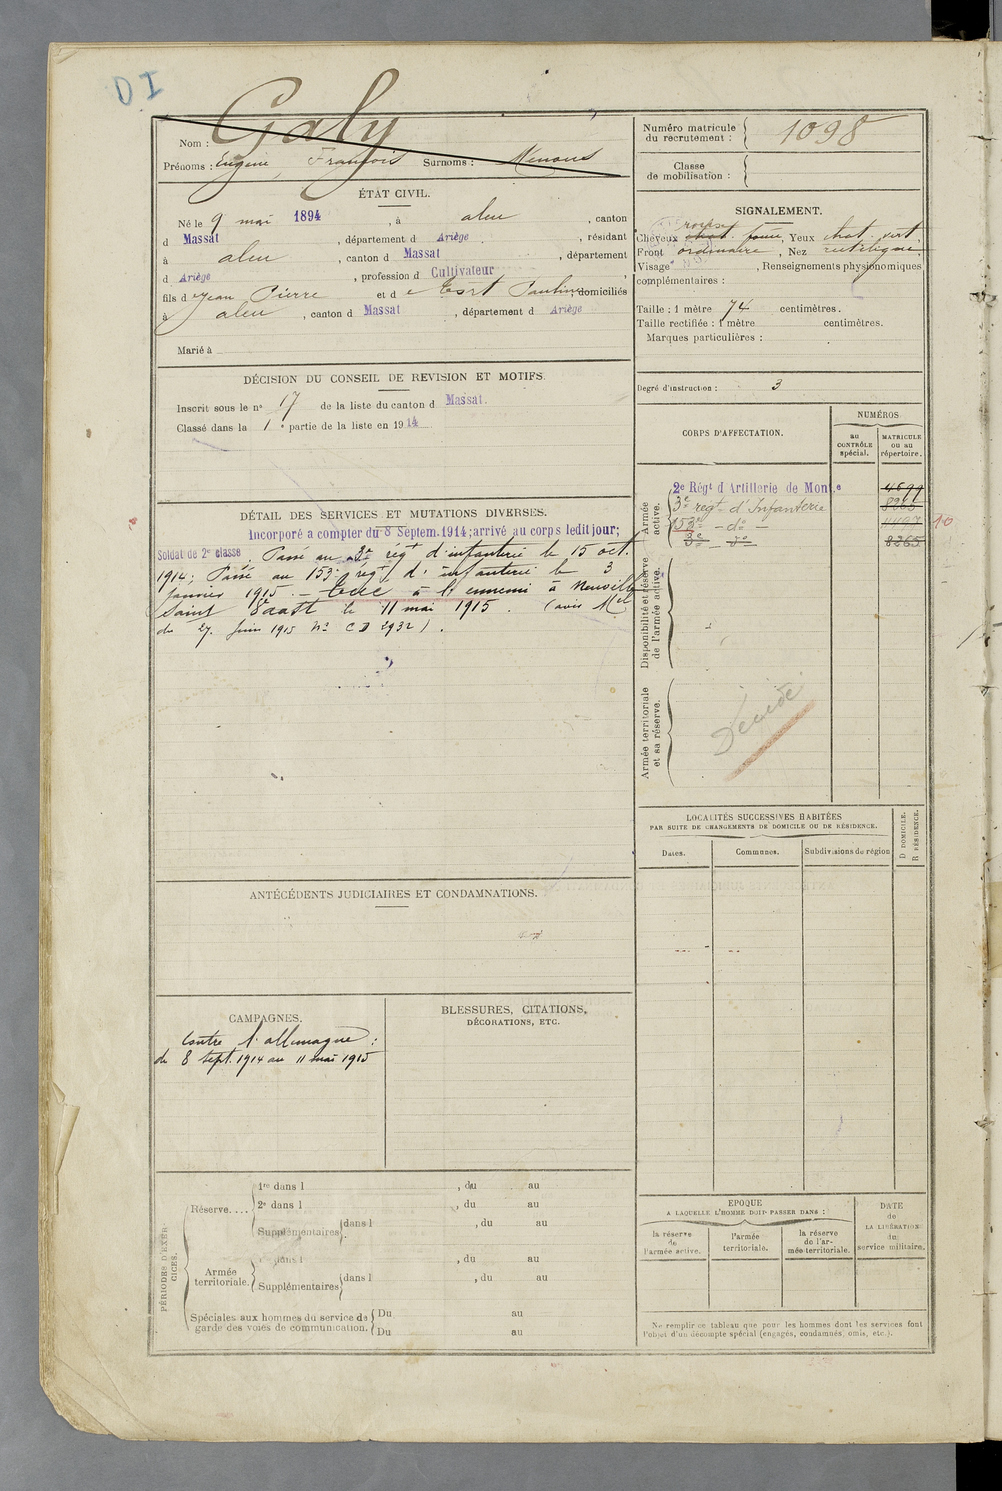 D I
Nom : Galy
Prénoms : Eugène François Surnoms :
ÉTAT CIVIL.
Né le 9 mai 1894, à aleu, canton
d Massat, département d Ariège, résidant
à aleu, canton d Massat, département
d Ariège, profession d Cultivateur,
fils de Jean Pierre et de Esrt Pauline, domiciliés
à aleu, canton d Massat, département d Ariège
Marié à
DÉCISION DU CONSEIL DE REVISION ET MOTIFS.
Inscrit sous le n° 17 de la liste du canton d Massat.
Classé dans la 1e partie de la liste en 1914
DÉTAIL DES SERVICES ET MUTATIONS DIVERSES.
Incorporé à compter du 8 Septem. 1914; arrivé au corps ledit jour;
Soldat de 2e classe Passé au 3e régt d'infanterie le 15 oct.
1914; Passé au 153e régt d'infanterie le 3
janvier 1915. — Tué à l'ennemi à Neuville
Saint Vaast le 11 mai 1915. (avis Mel
du 27 Juin 1915 No CD 2932).
ANTÉCÉDENTS JUDICIAIRES ET CONDAMNATIONS.
CAMPAGNES.
Contre l'allemagne :
du 8 sept. 1914 au 11 mai 1915
BLESSURES, CITATIONS,
DÉCORATIONS, ETC.
PÉRIODES D'EXERCICES.
Réserve....
1re dans l , du au
2e dans l , du au
Supplémentaires dans l , du au
Armée territoriale.
1re dans l , du au
Supplémentaires dans l , du au
Spéciales aux hommes du service de
garde des voies de communication.
Du au
Du au
Numéro matricule
du recrutement : 1098
Classe
de mobilisation :
SIGNALEMENT.
Cheveux chat. foncé, Yeux chat. vert
Front ordinaire, Nez rectiligne
Visage , Renseignements physionomiques
complémentaires :
Taille : 1 mètre 74 centimètres.
Taille rectifiée : 1 mètre centimètres.
Marques particulières :
Degré d'instruction : 3
CORPS D'AFFECTATION.
NUMÉROS
au
CONTRÔLE
spécial.
MATRICULE
ou au
répertoire.
Armée
active.
2e Régt d'Artillerie de Monte
3e régt d'Infanterie
153e — do — 10
3e — do — 8265
Disponibilité et réserve
de l'armée active.
Armée territoriale
et sa réserve.
Décédé
LOCALITÉS SUCCESSIVES HABITÉES
PAR SUITE DE CHANGEMENTS DE DOMICILE OU DE RÉSIDENCE.
Dates.
Communes.
Subdivisions de région
D DOMICILE.
R RÉSIDENCE.
EPOQUE
A LAQUELLE L'HOMME DOIT PASSER DANS :
la réserve
de
l'armée active.
l'armée
territoriale.
la réserve
de l'ar-
mée territoriale.
DATE
de
LA LIBÉRATION
du
service militaire.
Ne remplir ce tableau que pour les hommes dont les services font
l'objet d'un décompte spécial (engagés, condamnés, omis, etc.).